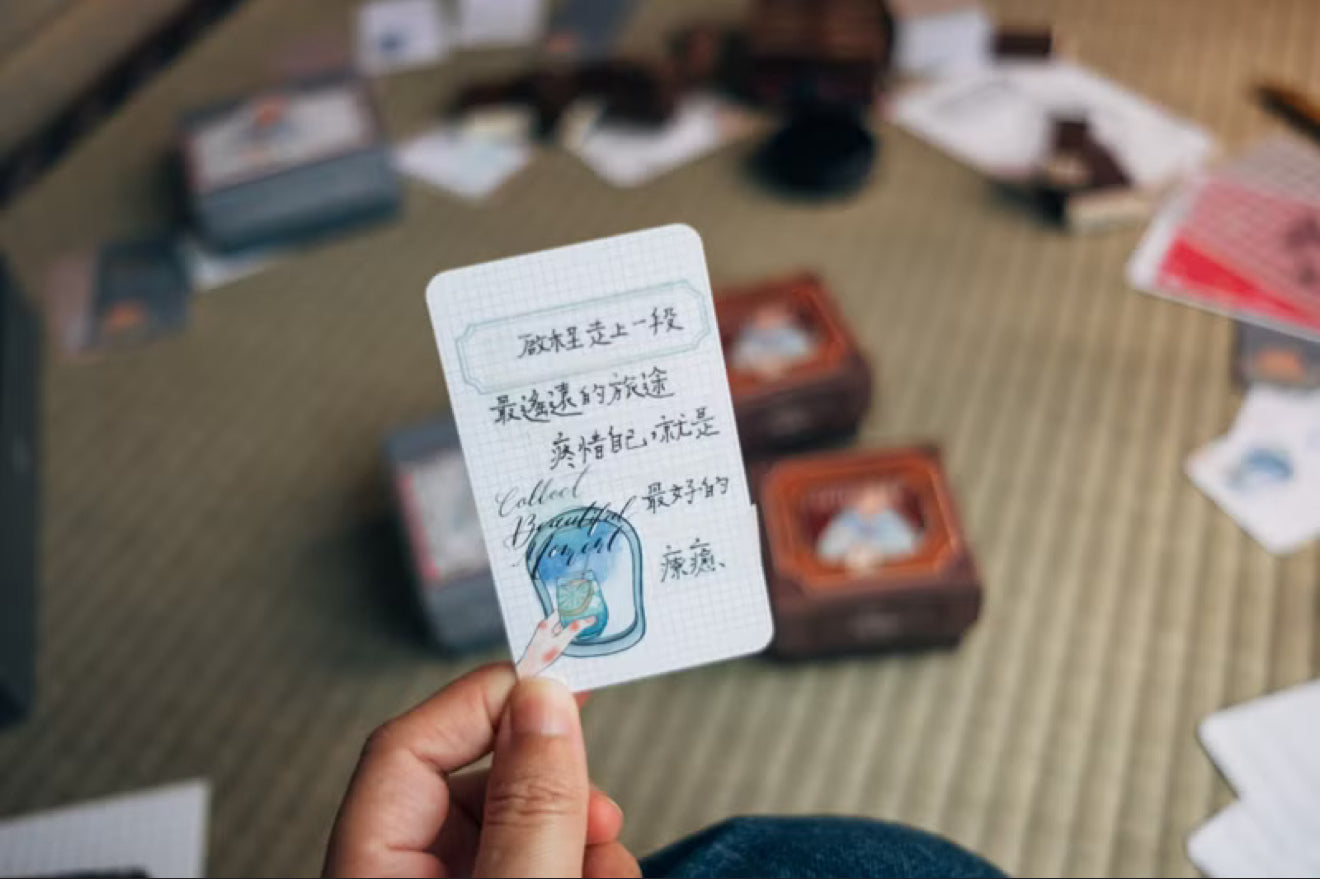 啟程走上一段
最遙遠的旅途
疼惜自己,就是
最好的
療癒、
Collect
Beautiful
Moment